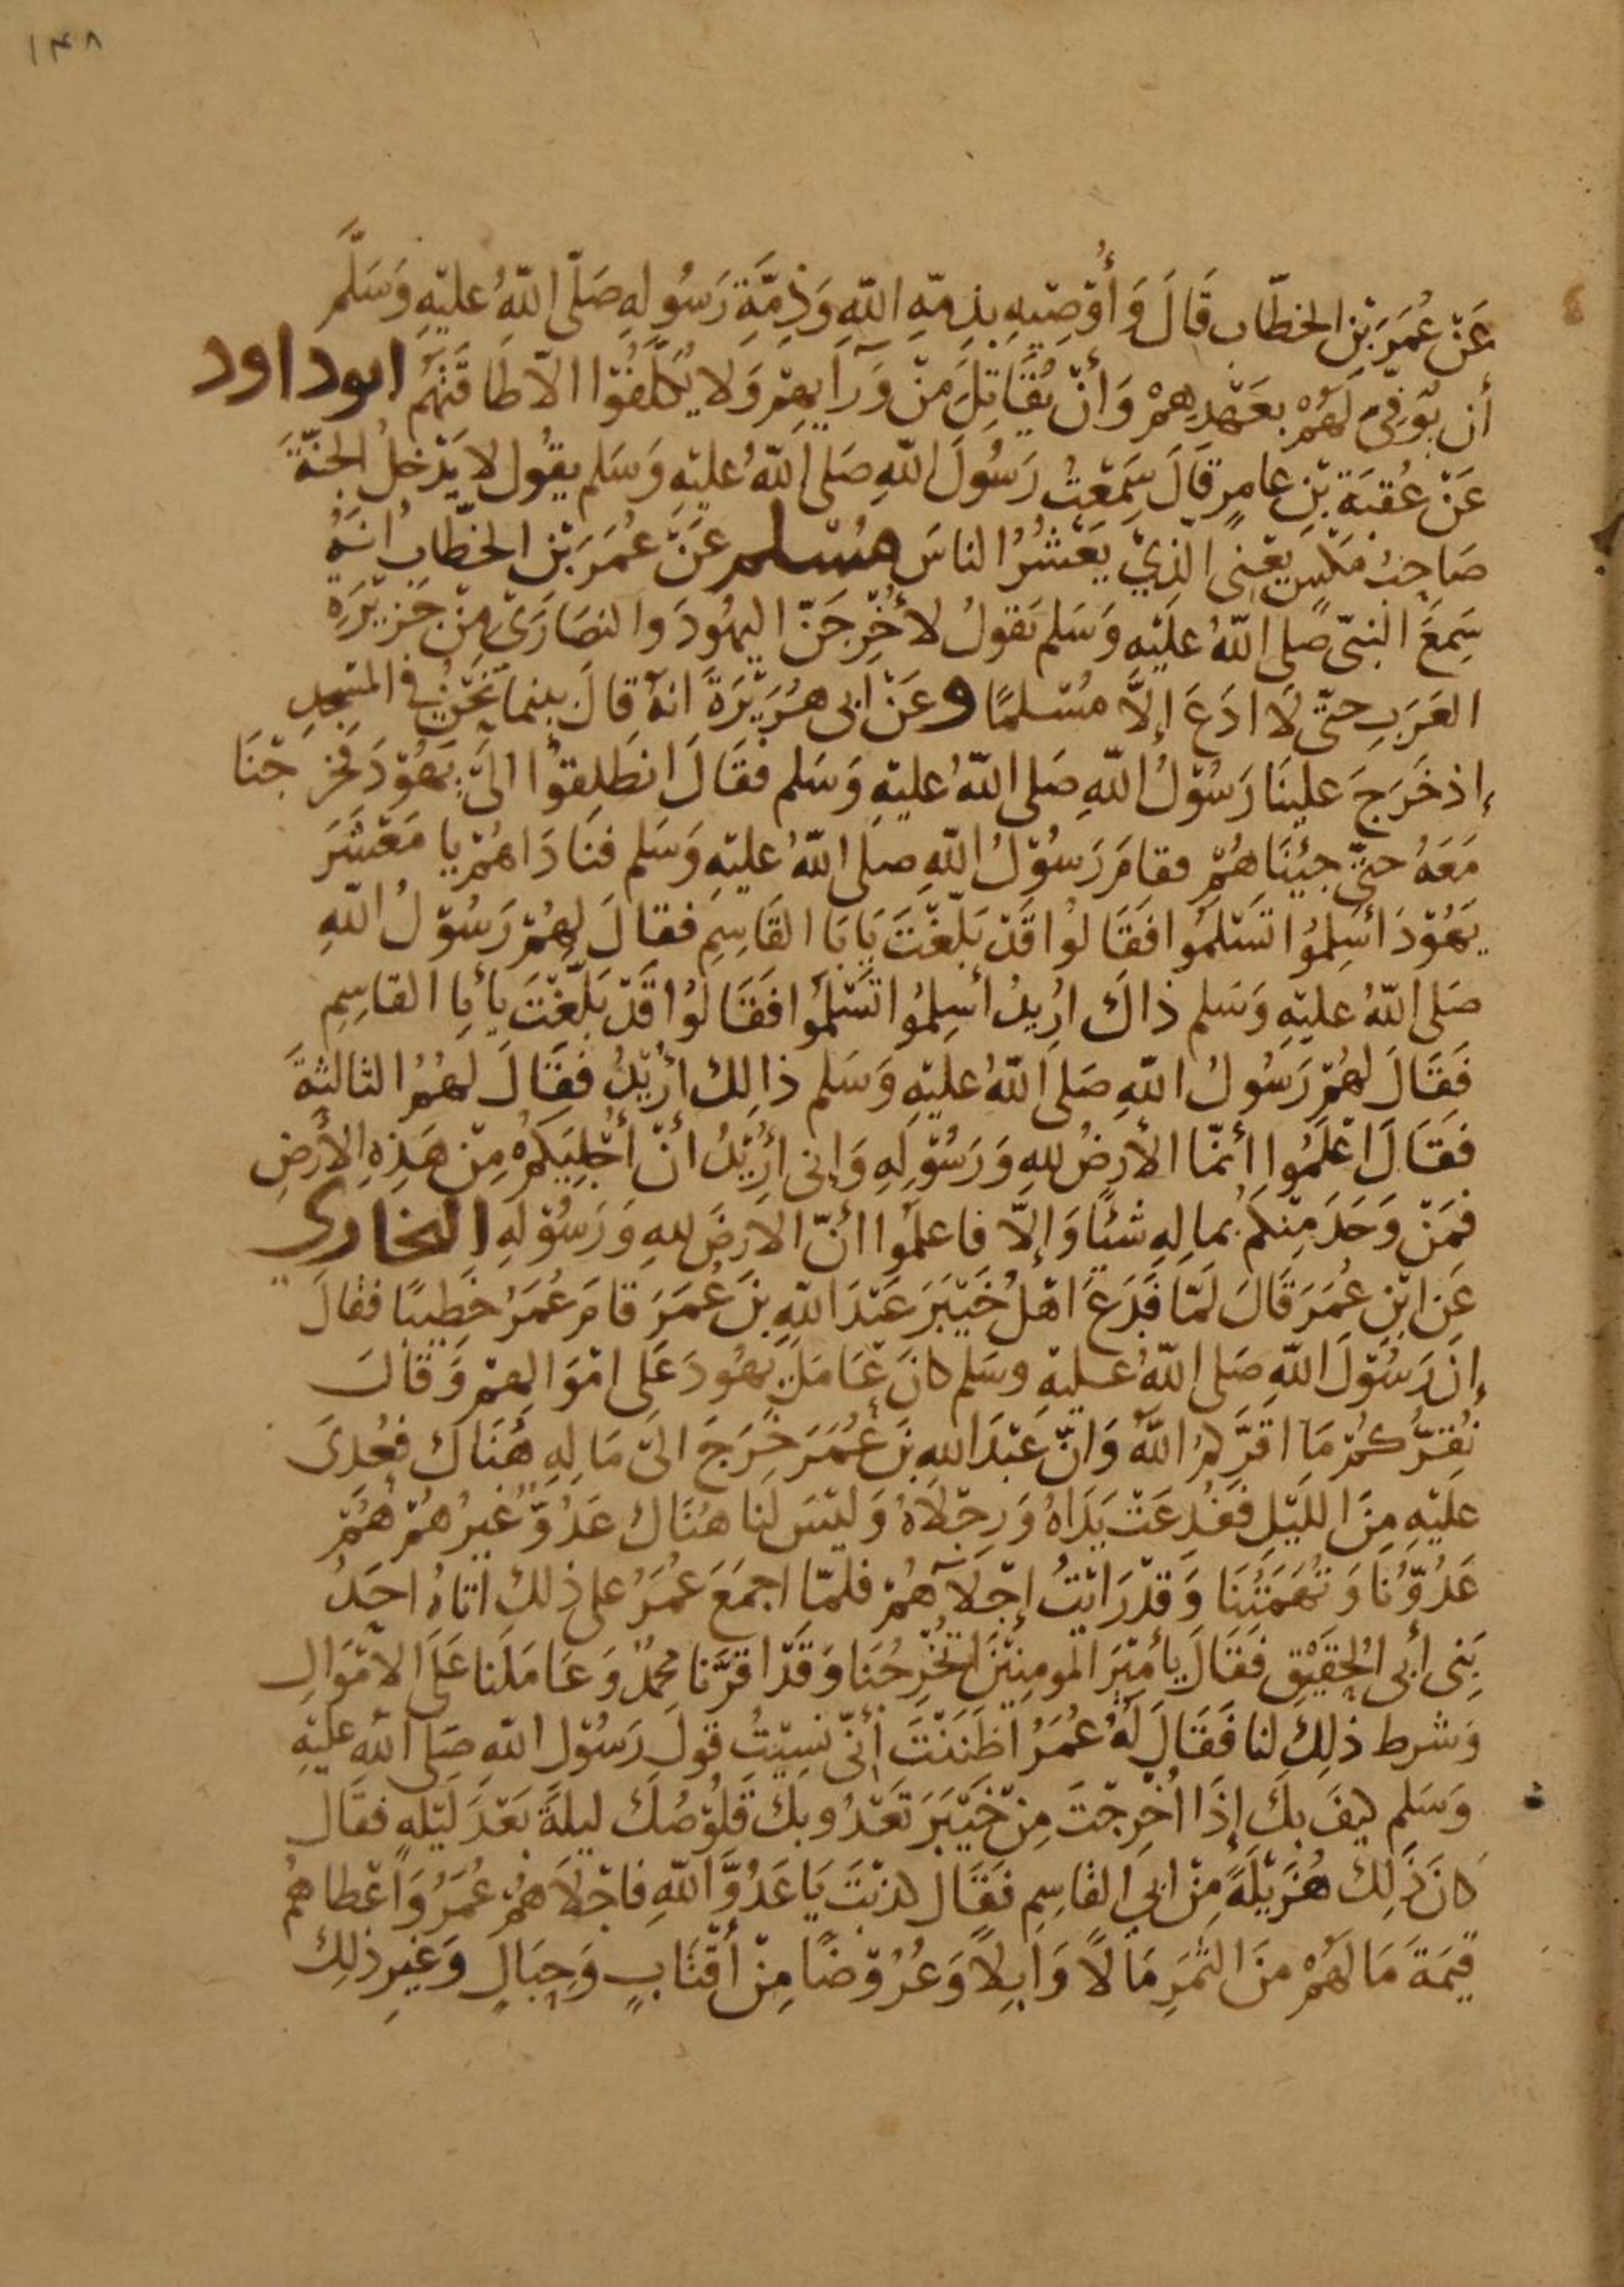 ١٤٨
عَنْ عُمَرَ بْنِ الخطّاب قَالَ وَأُوْصِيْهِ بِذِمّةِ اللّهِ وَذِمَّةِ رَسُولِهِ صَلّى اللّهُ عليْهِ وَسَلَّم
أن يُّوَفِّى لَهُمْ بِعَهْدِهِمْ وَأنْ يُقَاتَلَ مِنْ وَرَآيِهِمْ وَلا يُكَلَّفُوْا الاّ طَاقَتَهُمْ ابوداود
عَنْ عُقْبَةَ بْنِ عامِرٍ قَالَ سَمِعْتُ رَسُولَ اللّهِ صَلى اللّهُ عليْهِ وَسَلم يقُول لا يَدْخلُ الجنّةَ
صَاحِبُ مَكْسٍ يعْنِى الّذِيْ يَعْشُرُ الناسَ مسلم عَنْ عُمَرَ بْن الخطّابِ انَهُ
سَمِعَ النبّى صَلى اللّهُ علَيْهِ وَسَلم يَقولُ لأخْرِجَنّ اليهُودَ والنصَارَى مِنْ جَزيْرَةِ
العَرَبِ حتّى لَا ادَعَ إلاَّ مُسْلمًا وعَنْ ابى هُرَيْرَةَ انهُ قالَ بينما نَحْنُ فى المسْجِدِ
إذ خَرَجَ علينَا رَسُوْلُ اللّهِ صَلى اللّهُ عليْهِ وَسَلم فقَالَ انطَلِقوْا الىَ يَهُوْدَ فخَرجْنَا
مَعَهُ حتّى جِيْنَاهُمْ فقامَ رَسُوْلُ اللّهِ صلى اللّهُ عليْهِ وَسَلم فنَادَاهمْ يا مَعْشَرَ
يَهُوْدَ أسْلِمُوا تَسْلَمُوا فَقَالوُا قَدْ بَلّغْتَ يَابَا القَاسِمِ فقالَ لهُمْ رَسُوْلُ اللّهِ
صَلى اللّهُ عليْهِ وَسَلم ذاكَ ارُيدُ أسِلمُوا تَسْلَمُوا فَقَالوُا قَدْ بَلّغْتَ يأبا القاسِمِ
فَقَالَ لهُمْ رَسُولُ اللّهِ صَلى اللّهُ عليْهِ وَسَلم ذالِك أرُيْدُ فقَالَ لهُمُ الثالثةَ
فقَالَ اعْلَمُوا أنمّا الأرضُ للهِ وَرَسُوْلِهِ وَإنى ارُيْدُ انْ أجْلِيَكمْ مِنْ هَذِهِ الأرْضِ
فمَنْ وَجَدَ مِنْكمْ بمالِهِ شيْئًا وَإلاّ فاعلمُوا أنّ الأرْضَ للهِ وَرَسُوْلهِ البخارى
عَن ابْنِ عُمَرَ قَالَ لمّا فَدَعَ اهْلُ خَيْبَرَ عَبْدَ اللّهِ بْنَ عُمَرَ قامَ عُمَرُ خطِيبًا فقالَ
إنَ رَسُوْلَ اللّهِ صَلى اللّهُ عليْهِ وسَلم كانَ عَامَلَ يَهُودَ عَلَى امْوَالِهِمْ وَقالَ
نُقِرُّكمْ مَا اقَرَّكُمُ اللّهُ وَانّ عَبْدَ اللهِ بنَ عُمَرَ خَرَجَ الىَ مَالِهِ هُنَاكَ فعُدِىَ
علَيْهِ مِنَ الليْلِ فَفُدِعَتْ يَدَاهُ وَرِجْلاَهُ وَليْسَ لنا هُنَاك عَدُوٌّ غيرُهُمْ هُمْ
عَدُوُّنَا وَتُهَمَتُنَا وَقدْ رَايْتُ إجْلاَءَهُمْ فلمّا اجمَعَ عُمَرُ على ذلكَ اتاهُ احَدُ
بَنِى أبى الحقَيْقِ فقَالَ يأمِيْرَ المومنِيْنَ اتخْرِجُنَا وَقَدْ اقرَّنا محمدٌ وَعَامَلَنا عَلَى الأمْوَالِ
وَشرط ذلِكَ لنا فَقَالَ لَهُ عُمَرُ اَظَنَنْتَ أنّى نَسِيْتُ قولَ رَسُوْل اللّهِ صَلى اللّه عليْهِ
وَسَلم كيفَ بكَ إذَا اُخْرِجْتَ مِنْ خَيْبَرَ تَعْدُو بكَ قلُوْصُكَ ليلةً بَعْدَ ليْلهٍ فقَال
كانَ ذَلِك هُزَيْلَةً مِنْ ابى القَاسِمِ فقَال كذبْتَ يَا عَدُوَّ اللّهِ فاجْلاَهمْ عُمَرُ وَاعْطاهمْ
قيمَةَ مَا لَهُمْ منَ الثّمَرِ مَالاً وَابِلاً وَعُرُوْضًا مِنْ أقْتَابٍ وَحِبَالٍ وَغيرِ ذلِكَ